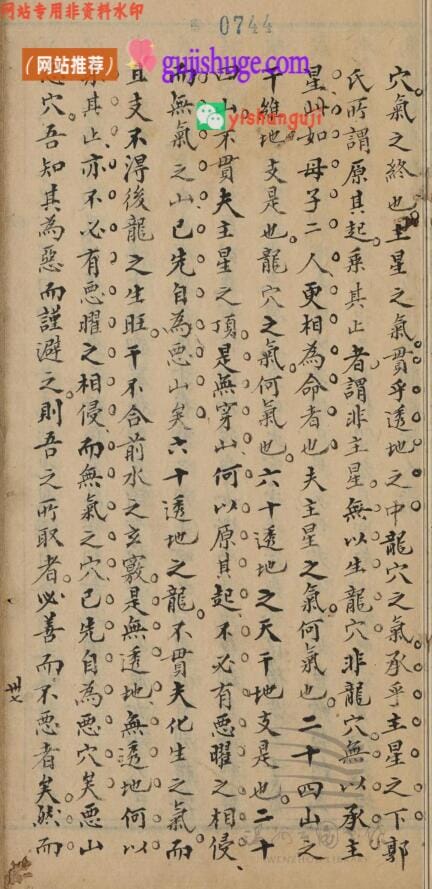 网站专用非资料水印
0744
(网站推荐)
gujishuge.com
yishunguji
穴氣之終也主星之氣貫乎透地之中龍穴之氣承乎主星之下郭
氏所謂原其起乘其止者謂非主星無以生龍穴非龍穴無以承主
星山如母子二人更相為命者也夫主星之氣何氣也二十四山之
干維地支是也龍穴之氣何氣也六十透地之天干地支是也二十
四山不貫夫主星之頂是無穿山何以原其起不必有惡曜之相侵
而無氣之山已先自為惡山矣六十透地之龍不貫夫化生之氣而
且支不得後龍之生旺干不合前水之玄竅是無透地無透地何以
乘其止亦不必有惡曜之相侵而無氣之穴已先自為惡穴矣惡山
惡穴吾知其為惡而謹避之則吾之所取者必善而不惡者矣然而
卅七